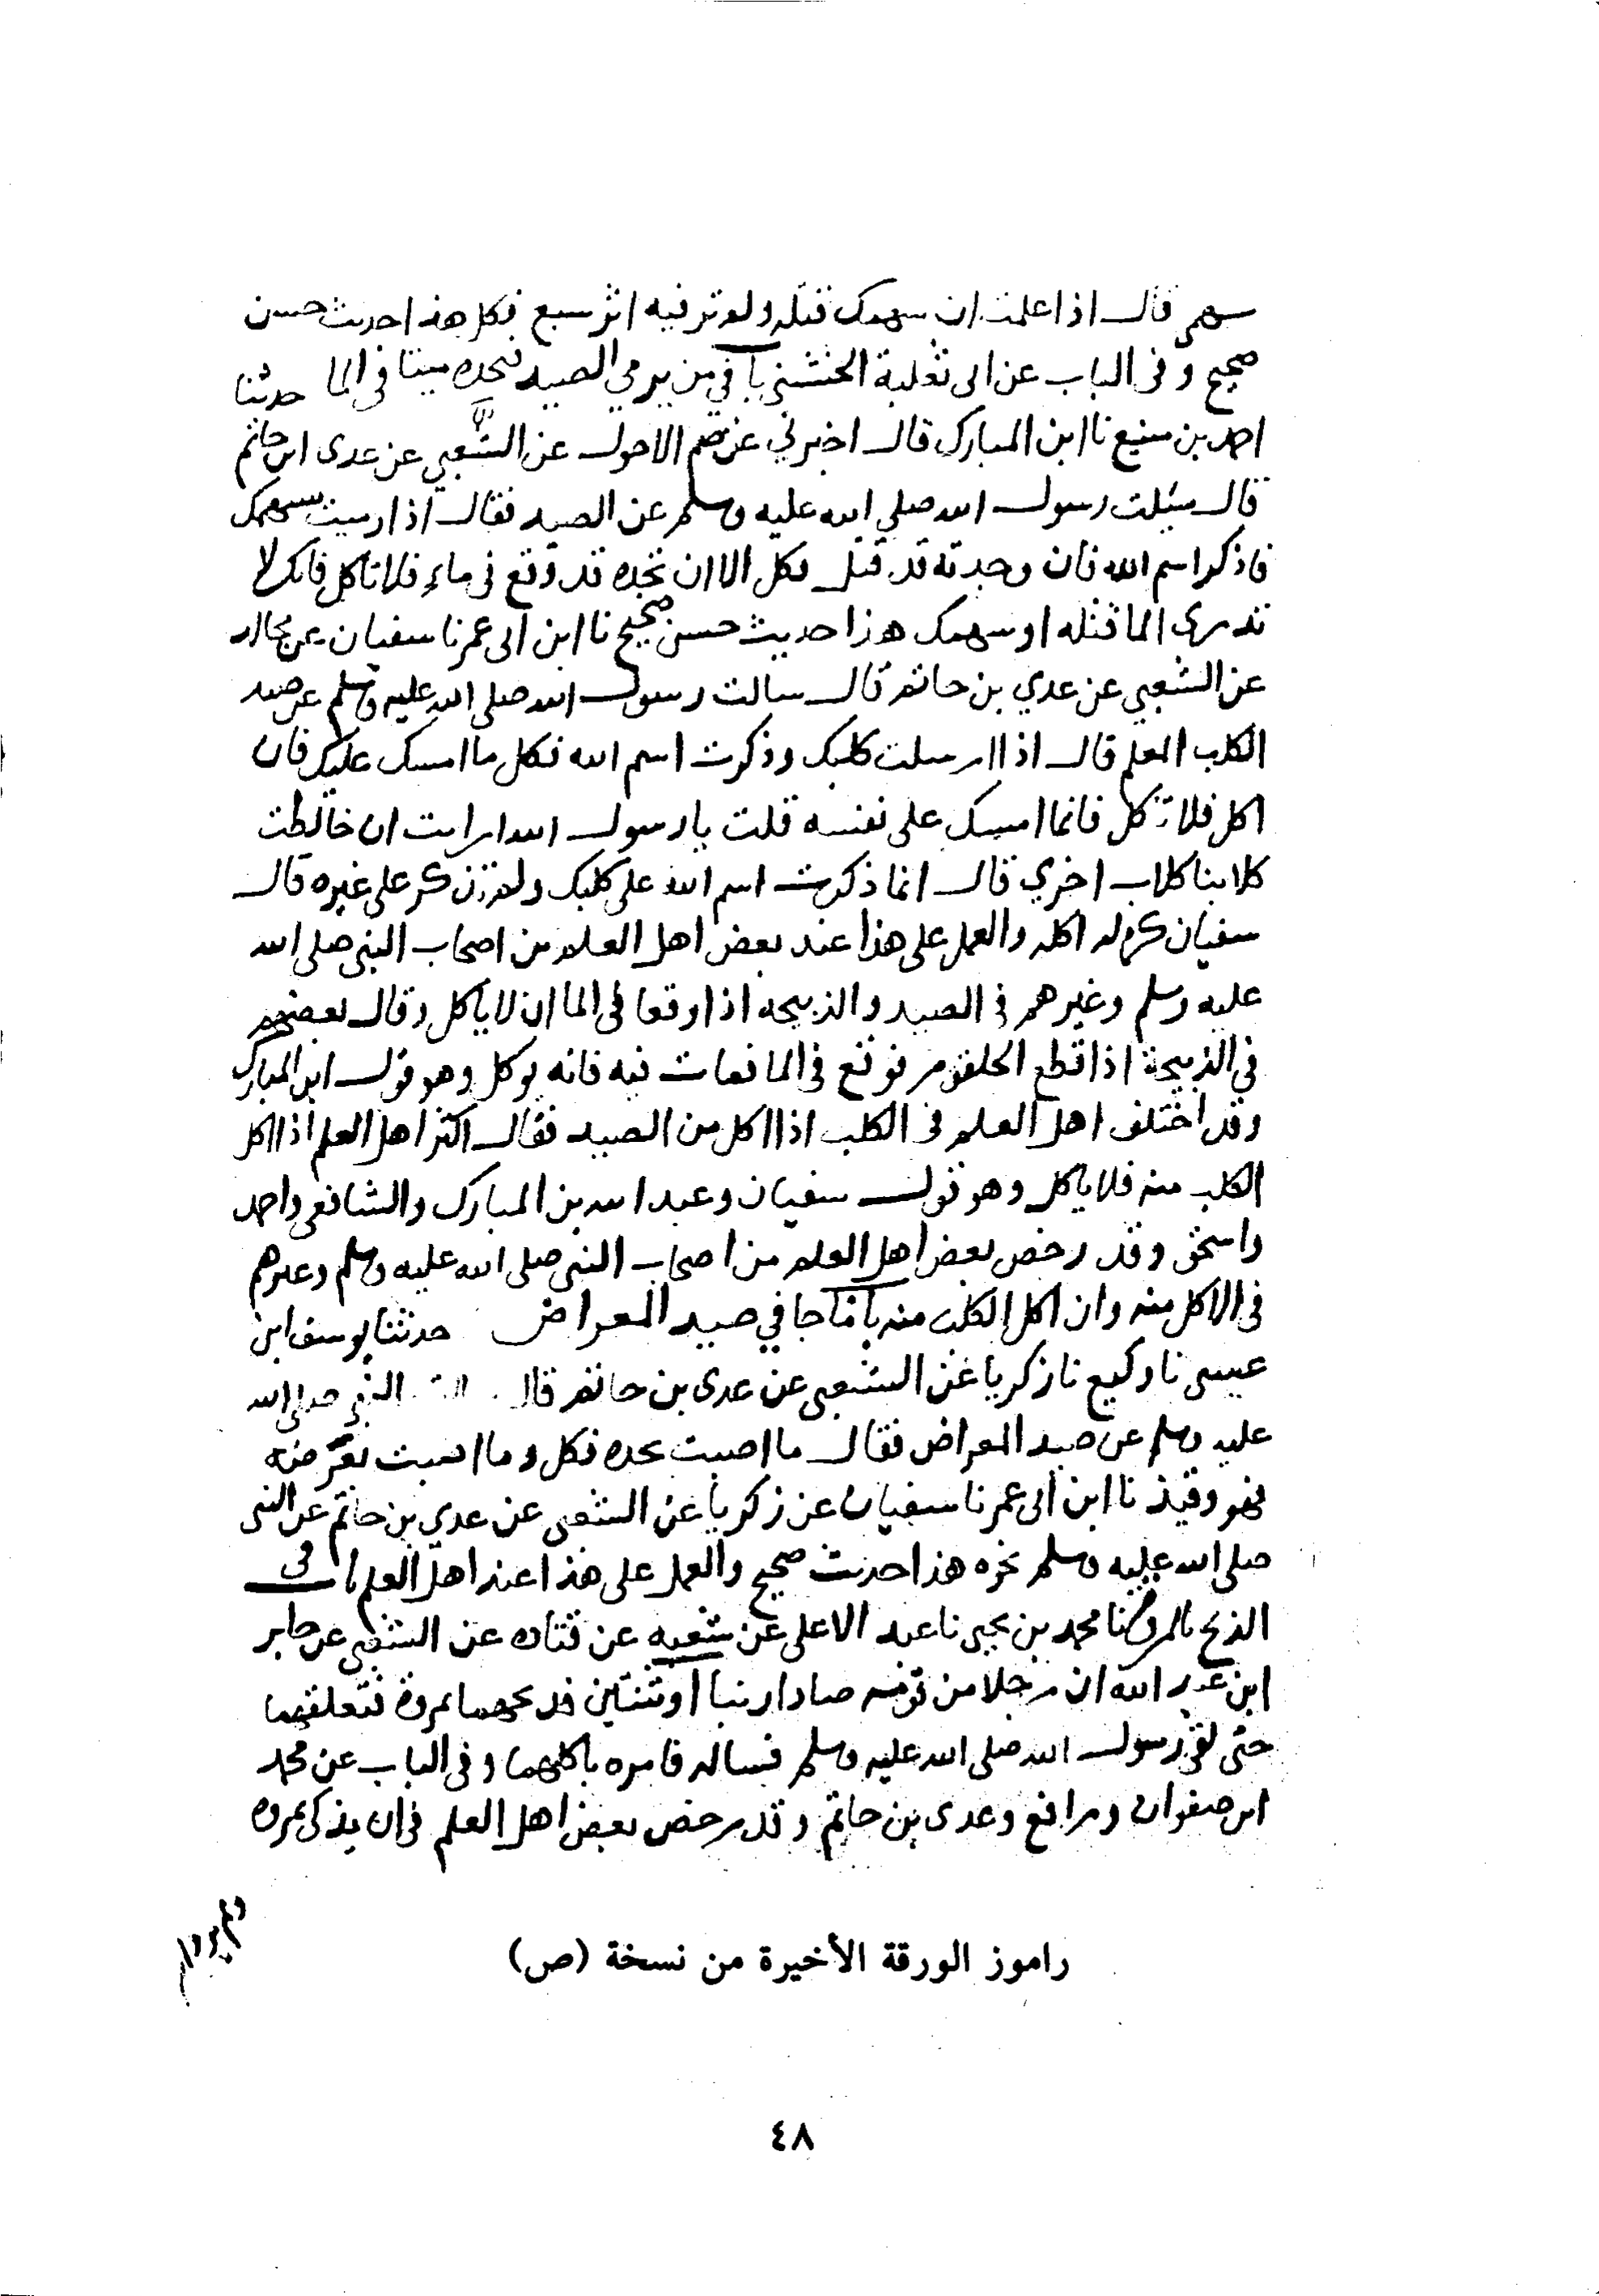 سهمي قال اذا علمت ان سهمك قتله ولم تر فيه اثر سبع فكل هذا حديث حسن
صحيح وفي الباب عن ابي ثعلبة الخشني باب في من يرمي الصيد فيجده ميتا في الما حدثنا
احمد بن منيع نا ابن المبارك قال اخبرني عاصم الاحول عن الشعبي عن عدي ابن حاتم
قال سئلت رسول الله صلى الله عليه وسلم عن الصيد فقال اذا رميت سهمك
فاذكر اسم الله فان وجدته قد قتل فكل الا ان تجده قد وقع في ماء فلا تاكل فانك لا
تدري الما قتله او سهمك هذا حديث حسن صحيح نا ابن ابي عمر نا سفيان عن مجالد
عن الشعبي عن عدي بن حاتم قال سالت رسول الله صلى الله عليه وسلم عن صيد
الكلب المعلم قال اذا ارسلت كلبك وذكرت اسم الله فكل ما امسك عليك فان
اكل فلا تاكل فانما امسك على نفسه قلت يا رسول الله ارايت ان خالطت
كلابنا كلاب اخري قال انما ذكرت اسم الله على كلبك ولم تذكر على غيره قال
سفيان كره له اكله والعمل على هذا عند بعض اهل العلم من اصحاب النبي صلى الله
عليه وسلم وغيرهم في الصيد والذبيحه اذا وقعا في الما ان لا ياكل وقال بعضهم
في الذبيحة اذا قطع الحلقوم فوقع في الما فمات فيه فانه يوكل وهو قول ابن المبارك
وقد اختلف اهل العلم في الكلب اذا اكل من الصيد فقال اكثر اهل العلم اذا اكل
الكلب منه فلا ياكل وهو قول سفيان وعبد الله بن المبارك والشافعي واحمد
واسحق وقد رخص بعض اهل العلم من اصحاب النبي صلى الله عليه وسلم وغيرهم
في الاكل منه وان اكل الكلب منه باب ما جا في صيد المعراض حدثنا يوسف ابن
عيسى نا وكيع نا زكريا عن الشعبي عن عدي بن حاتم قال النبي صلى الله
عليه وسلم عن صيد المعراض فقال ما اصبت بحده فكل وما اصبت بعرضه
فهو وقيذ نا ابن ابي عمر نا سفيان عن زكريا عن الشعبي عن عدي بن حاتم عن النبي
صلى الله عليه وسلم نحوه هذا حديث صحيح والعمل على هذا عند اهل العلم باب في
الذبح بالمروة نا محمد بن يحيى نا عبد الاعلى عن شعبه عن قتاده عن الشعبي عن جابر
ابن عبد الله ان رجلا من قومه صاد ارنبا او ثنتين فذبحهما بمروة فتعلقهما
حتى لقي رسول الله صلى الله عليه وسلم فساله فامره باكلهما وفي الباب عن محمد
ابن صفوان ورافع وعدي بن حاتم وقد رخص بعض اهل العلم في ان يذكي بمروه
راموز الورقة الأخيرة من نسخة (ص)
٤٨